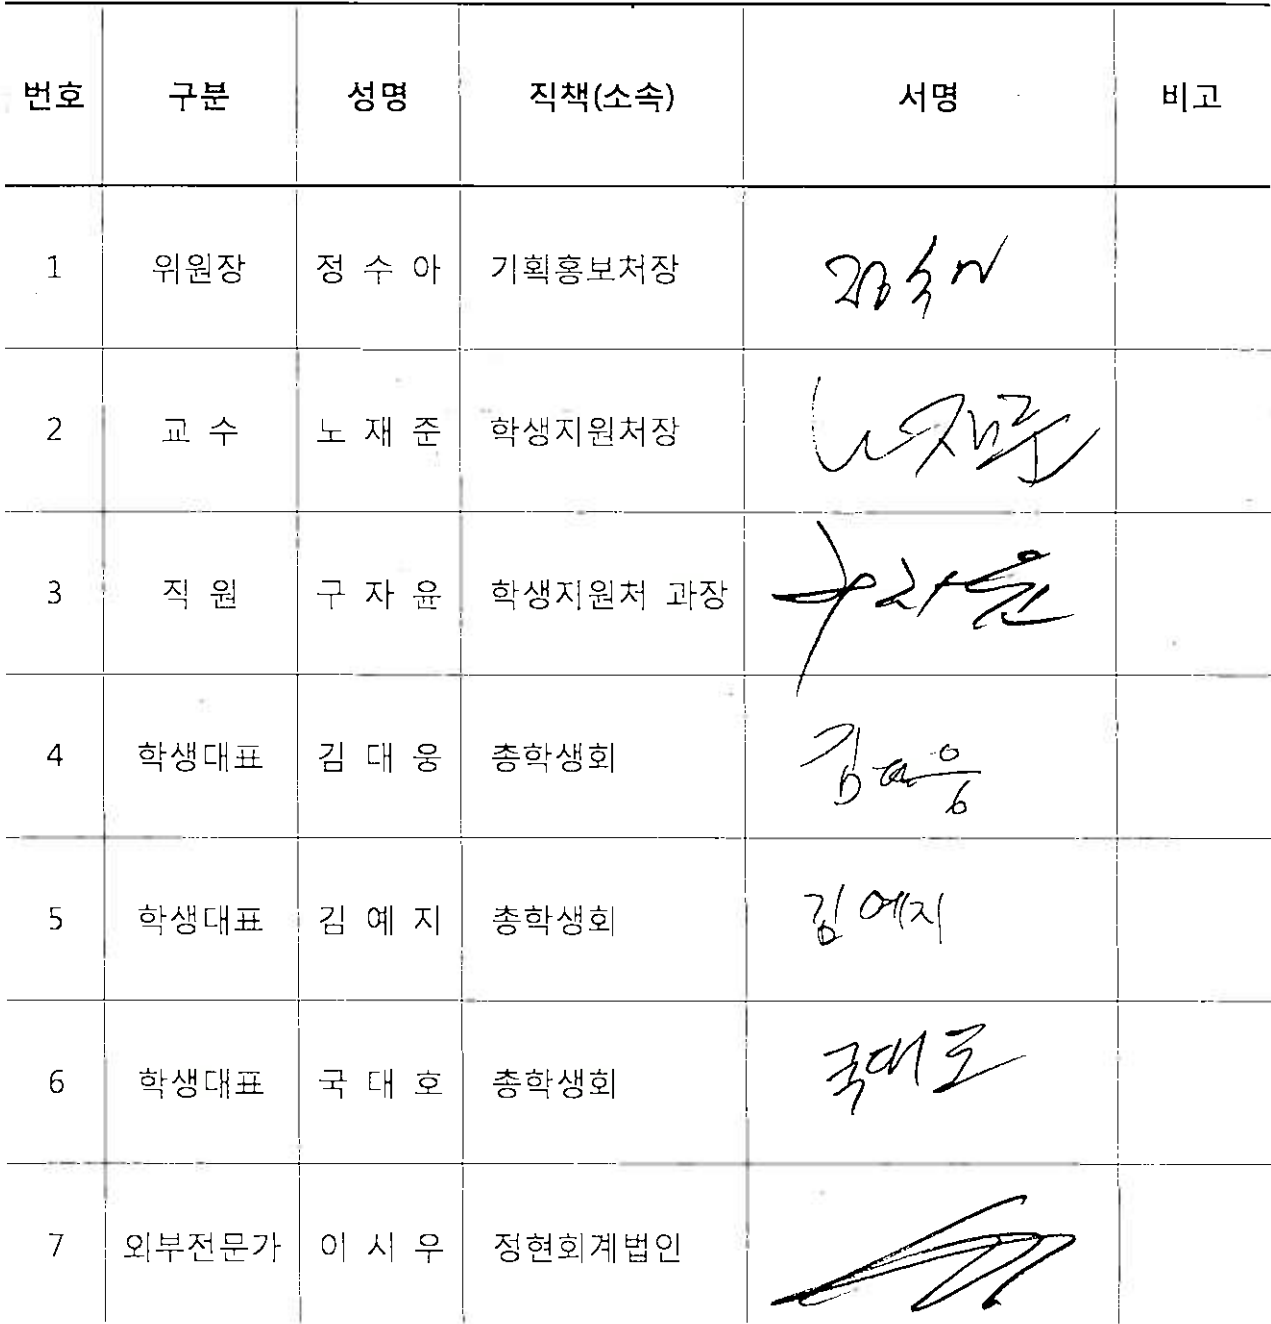 번호 구분 성명 직책(소속) 서명 비고
1 위원장 정 수 아 기획홍보처장 정수아
2 교 수 노 재 준 학생지원처장 노재준
3 직 원 구 자 윤 학생지원처 과장 구자윤
4 학생대표 김 대 웅 총학생회 김대웅
5 학생대표 김 예 지 총학생회 김예지
6 학생대표 국 대 호 총학생회 국대호
7 외부전문가 이 시 우 정현회계법인